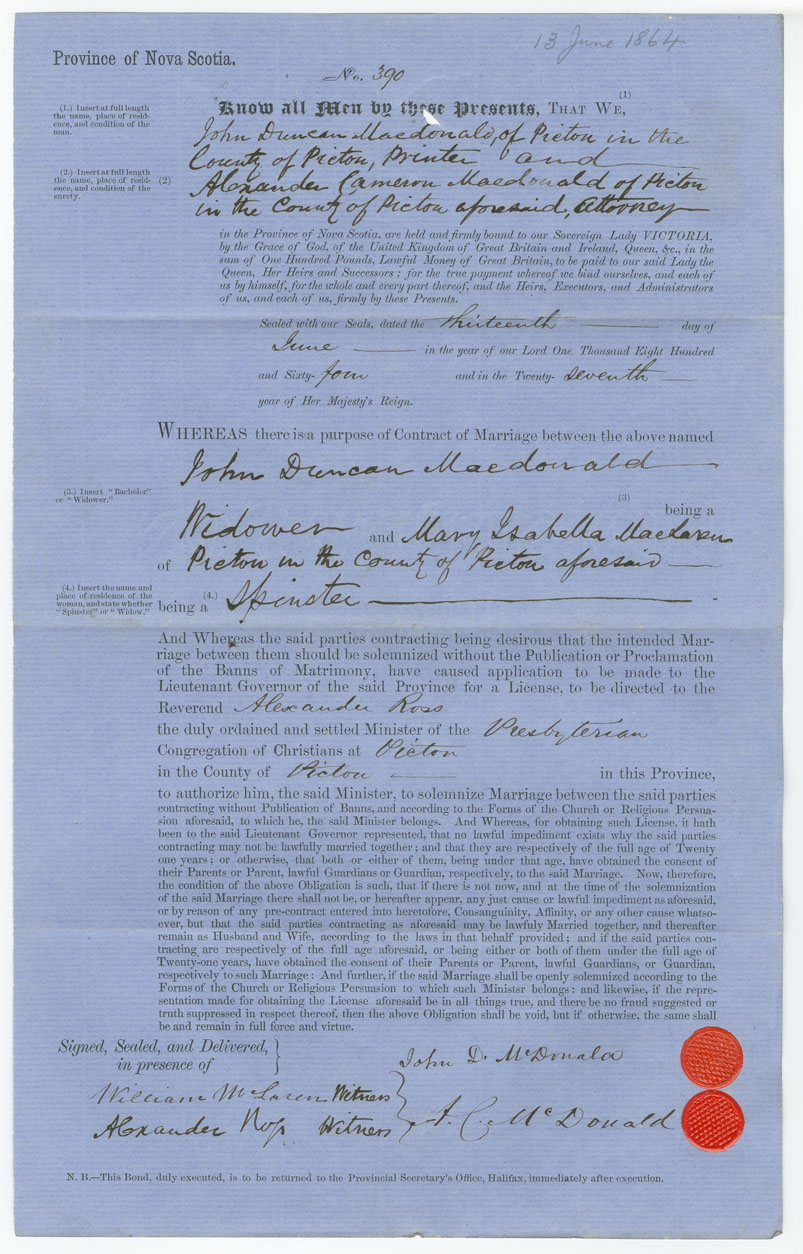 13 June 1864
Province of Nova Scotia.
No. 390
(1)
Know all Men by these Presents, THAT WE,
(1.) Insert at full length
the name, place of resid-
ence, and condition of the
man.
John Duncan Macdonald, of Picton in the
County of Picton, Printer and
(2.) Insert at full length
the name, place of resid-
ence, and condition of the
surety.
(2)
Alexander Cameron Macdonald of Picton
in the County of Picton aforesaid, Attorney
in the Province of Nova Scotia, are held and firmly bound to our Sovereign Lady VICTORIA,
by the Grace of God, of the United Kingdom of Great Britain and Ireland, Queen, &c., in the
sum of One Hundred Pounds, Lawful Money of Great Britain, to be paid to our said Lady the
Queen, Her Heirs and Successors ; for the true payment whereof we bind ourselves, and each of
us by himself, for the whole and every part thereof, and the Heirs, Executors, and Administrators
of us, and each of us, firmly by these Presents.
Sealed with our Seals, dated the thirteenth day of
June in the year of our Lord One Thousand Eight Hundred
and Sixty- four and in the Twenty- seventh
year of Her Majesty's Reign.
WHEREAS there is a purpose of Contract of Marriage between the above named
John Duncan Macdonald
(3.) Insert "Bachelor"
or "Widower."
(3)
being a
Widower and Mary Isabella MacLaren
of Picton in the County of Picton aforesaid
(4.) Insert the name and
place of residence of the
woman, and state whether
"Spinster" or "Widow."
(4.)
being a Spinster
And Whereas the said parties contracting being desirous that the intended Mar-
riage between them should be solemnized without the Publication or Proclamation
of the Banns of Matrimony, have caused application to be made to the
Lieutenant Governor of the said Province for a License, to be directed to the
Reverend Alexander Ross
the duly ordained and settled Minister of the Presbyterian
Congregation of Christians at Picton
in the County of Picton in this Province,
to authorize him, the said Minister, to solemnize Marriage between the said parties
contracting without Publication of Banns, and according to the Forms of the Church or Religious Persua-
sion aforesaid, to which he, the said Minister belongs. And Whereas, for obtaining such License, it hath
been to the said Lieutenant Governor represented, that no lawful impediment exists why the said parties
contracting may not be lawfully married together ; and that they are respectively of the full age of Twenty
one years ; or otherwise, that both or either of them, being under that age, have obtained the consent of
their Parents or Parent, lawful Guardians or Guardian, respectively, to the said Marriage. Now, therefore,
the condition of the above Obligation is such, that if there is not now, and at the time of the solemnization
of the said Marriage there shall not be, or hereafter appear, any just cause or lawful impediment as aforesaid,
or by reason of any pre-contract entered into heretofore, Consanguinity, Affinity, or any other cause whatso-
ever, but that the said parties contracting as aforesaid may be lawfuly Married together, and thereafter
remain as Husband and Wife, according to the laws in that behalf provided ; and if the said parties con-
tracting are respectively of the full age aforesaid, or being either or both of them under the full age of
Twenty-one years, have obtained the consent of their Parents or Parent, lawful Guardians, or Guardian,
respectively to such Marriage : And further, if the said Marriage shall be openly solemnized according to the
Forms of the Church or Religious Persuasion to which such Ministsr belongs : and likewise, if the repre-
sentation made for obtaining the License aforesaid be in all things true, and there be no fraud suggested or
truth suppressed in respect thereof, then the above Obligation shall be void, but if otherwise, the same shall
be and remain in full force and virtue.
Signed, Sealed, and Delivered,
in presence of
John D. McDonald
William McLaren Witness
Alexander Ross Witness
A. C. McDonald
N. B.—This Bond, duly executed, is to be returned to the Provincial Secretary's Office, Halifax, immediately after execution.